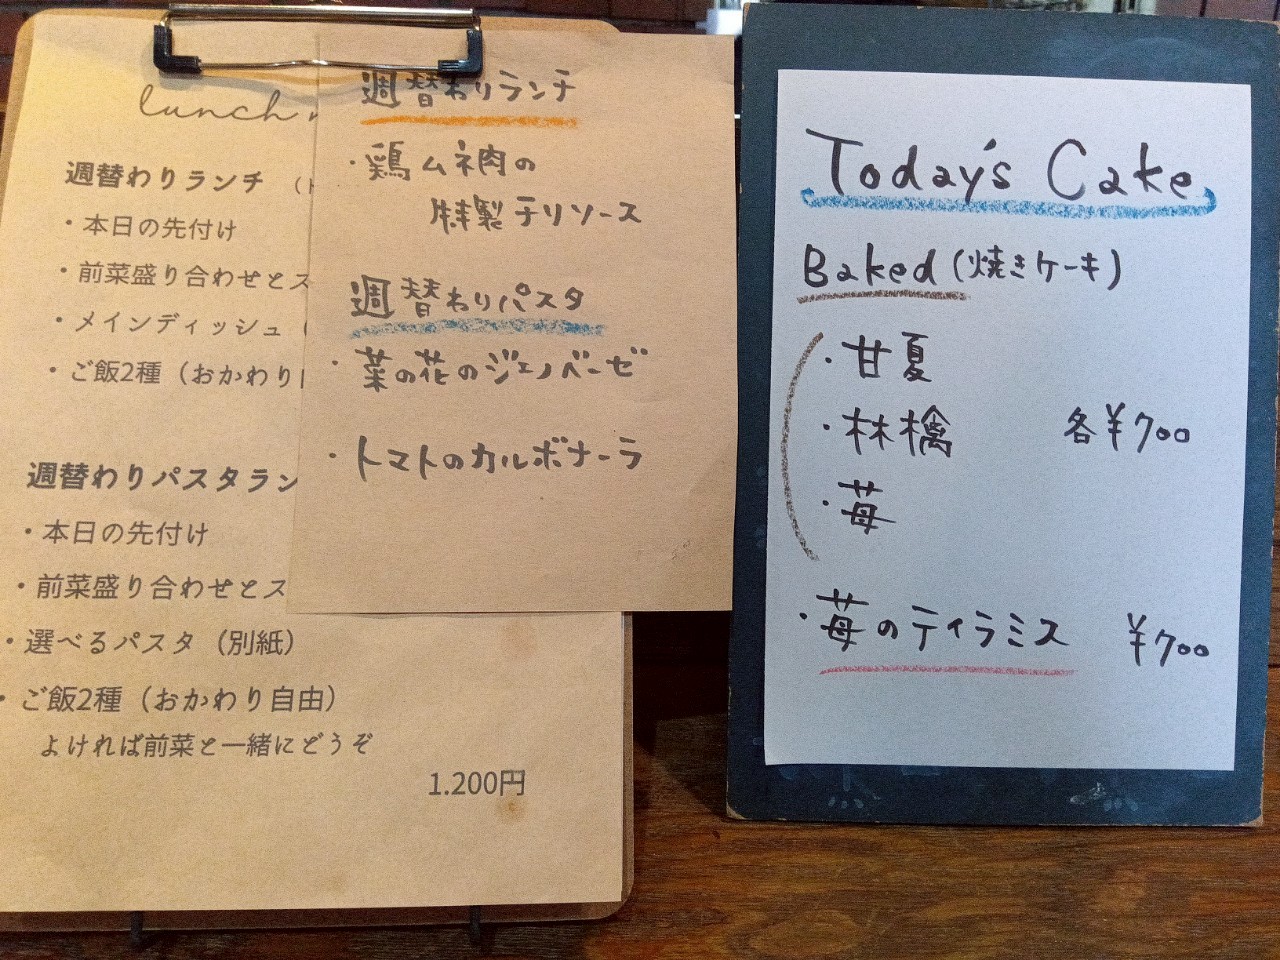 lunch
週替わりランチ
・本日の先付け
・前菜盛り合わせとス
・メインディッシュ（
・ご飯2種（おかわり
週替わりパスタラン
・本日の先付け
・前菜盛り合わせとス
・選べるパスタ（別紙）
・ご飯2種（おかわり自由）
よければ前菜と一緒にどうぞ
1.200円
週替わりランチ
・鶏ムネ肉の
特製チリソース
週替わりパスタ
・菜の花のジェノベーゼ
・トマトのカルボナーラ
Today's Cake
Baked (焼きケーキ)
・甘夏
・林檎 各¥700
・苺
・苺のティラミス ¥700